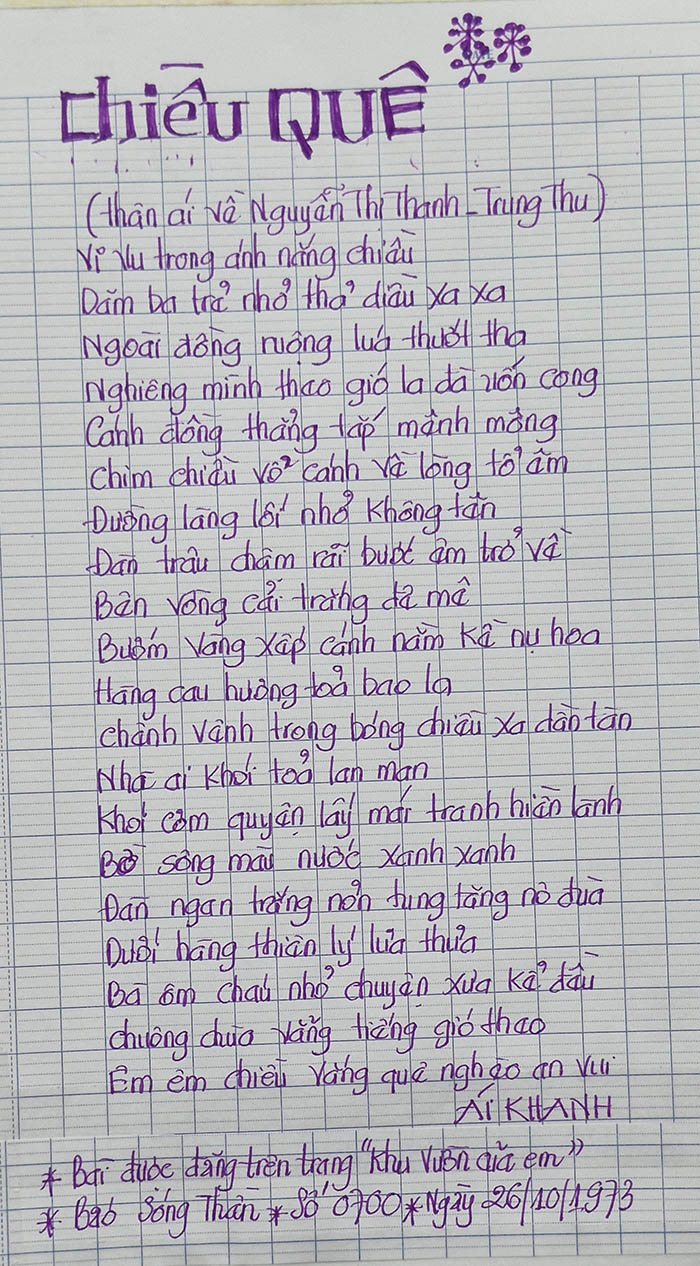 Chiều QUÊ
(thân ái về Nguyễn Thị Thanh - Trung Thu)
Vi vu trong ánh nắng chiều
Dăm ba trẻ nhỏ thả diều xa xa
Ngoài đồng ruộng lúa thướt tha
Nghiêng mình theo gió la đà uốn cong
Cánh đồng thẳng tắp mênh mông
Chim chiều vỗ cánh về lòng tổ ấm
Đường làng lối nhỏ không tên
Đàn trâu chậm rãi bước êm trở về
Bên vồng cải trắng đê mê
Bướm vàng xếp cánh nằm kề nụ hoa
Hàng cau hương toả bao la
Chênh vênh trong bóng chiều xa dần tàn
Nhà ai khói toả lan man
Khói cơm quyện lấy mái tranh hiền lành
Bờ sông màu nước xanh xanh
Đàn ngan trắng nõn tung tăng nô đùa
Dưới hàng thiên lý lưa thưa
Bà ôm cháu nhỏ chuyện xưa kể đều
Chuông chùa vẳng tiếng gió theo
Êm êm chiều vàng quê nghèo an vui.
ÁI KHANH
* Bài được đăng trên trang "Khu vườn của em"
* Báo Sóng Thần * Số 0700 * Ngày 26/10/1973